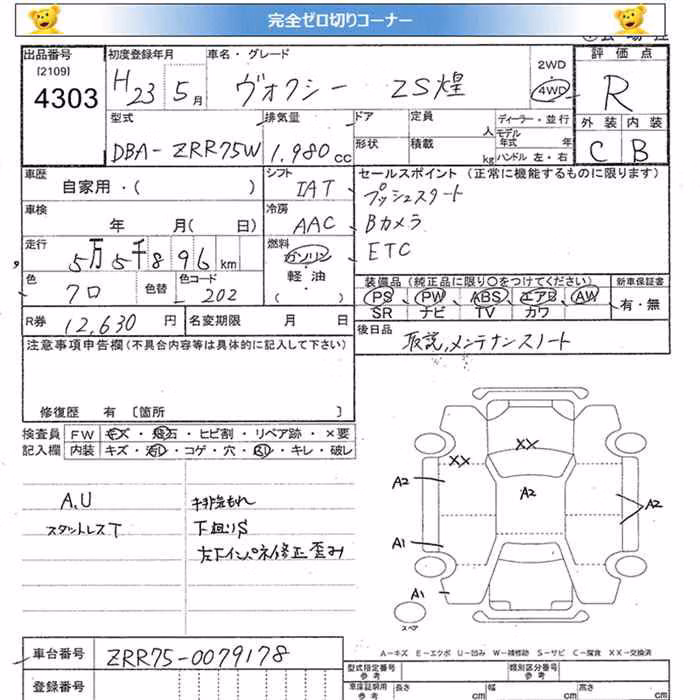 完全ゼロ切りコーナー
出品番号
[2109]
4303
初度登録年月
H 23 5月
車名・グレード
ヴォクシー ZS煌
2WD
4WD
評価点
R
型式
DBA-ZRR75W
排気量
1,980cc
ドア
形状
定員
人
積載
kg
ディーラー・並行
モデル年式 年
ハンドル 左・右
外装 内装
C B
車歴
自家用・( )
シフト
IAT
車検
年 月( 日)
冷房
AAC
走行
5万5千896km
燃料
ガソリン
軽・油
( )
色
クロ
色替
色コード
202
R券 12,630円
名変期限 月 日
セールスポイント (正常に機能するものに限ります)
プッシュスタート
Bカメラ
ETC
装備品 (純正品に限り○をつけてください)
PS PW ABS エアB AW
SR ナビ TV カワ
新車保証書
有・無
後日品
取説,メンテナンスノート
注意事項申告欄 (不具合内容等は具体的に記入して下さい)
修復歴 有 [箇所 ]
検査員
記入欄
FW キズ・飛石・ヒビ割・リペア跡・×要
内装 キズ・汚レ・コゲ・穴・・キレ・破レ
A.U
スタットレスT
排気もれ
下廻りS
左下インパネ修正歪み
XX
XX
A2
A2
A2
A1
A1
スペア
A-キズ E-エクボ U-凹み W-補修跡 S-サビ C-腐食 XX-交換済
車台番号 ZRR75-0079178
登録番号
型式指定番号
参考
類別区分番号
参考
車庫証明用
参考
長さ cm
幅 cm
高さ cm